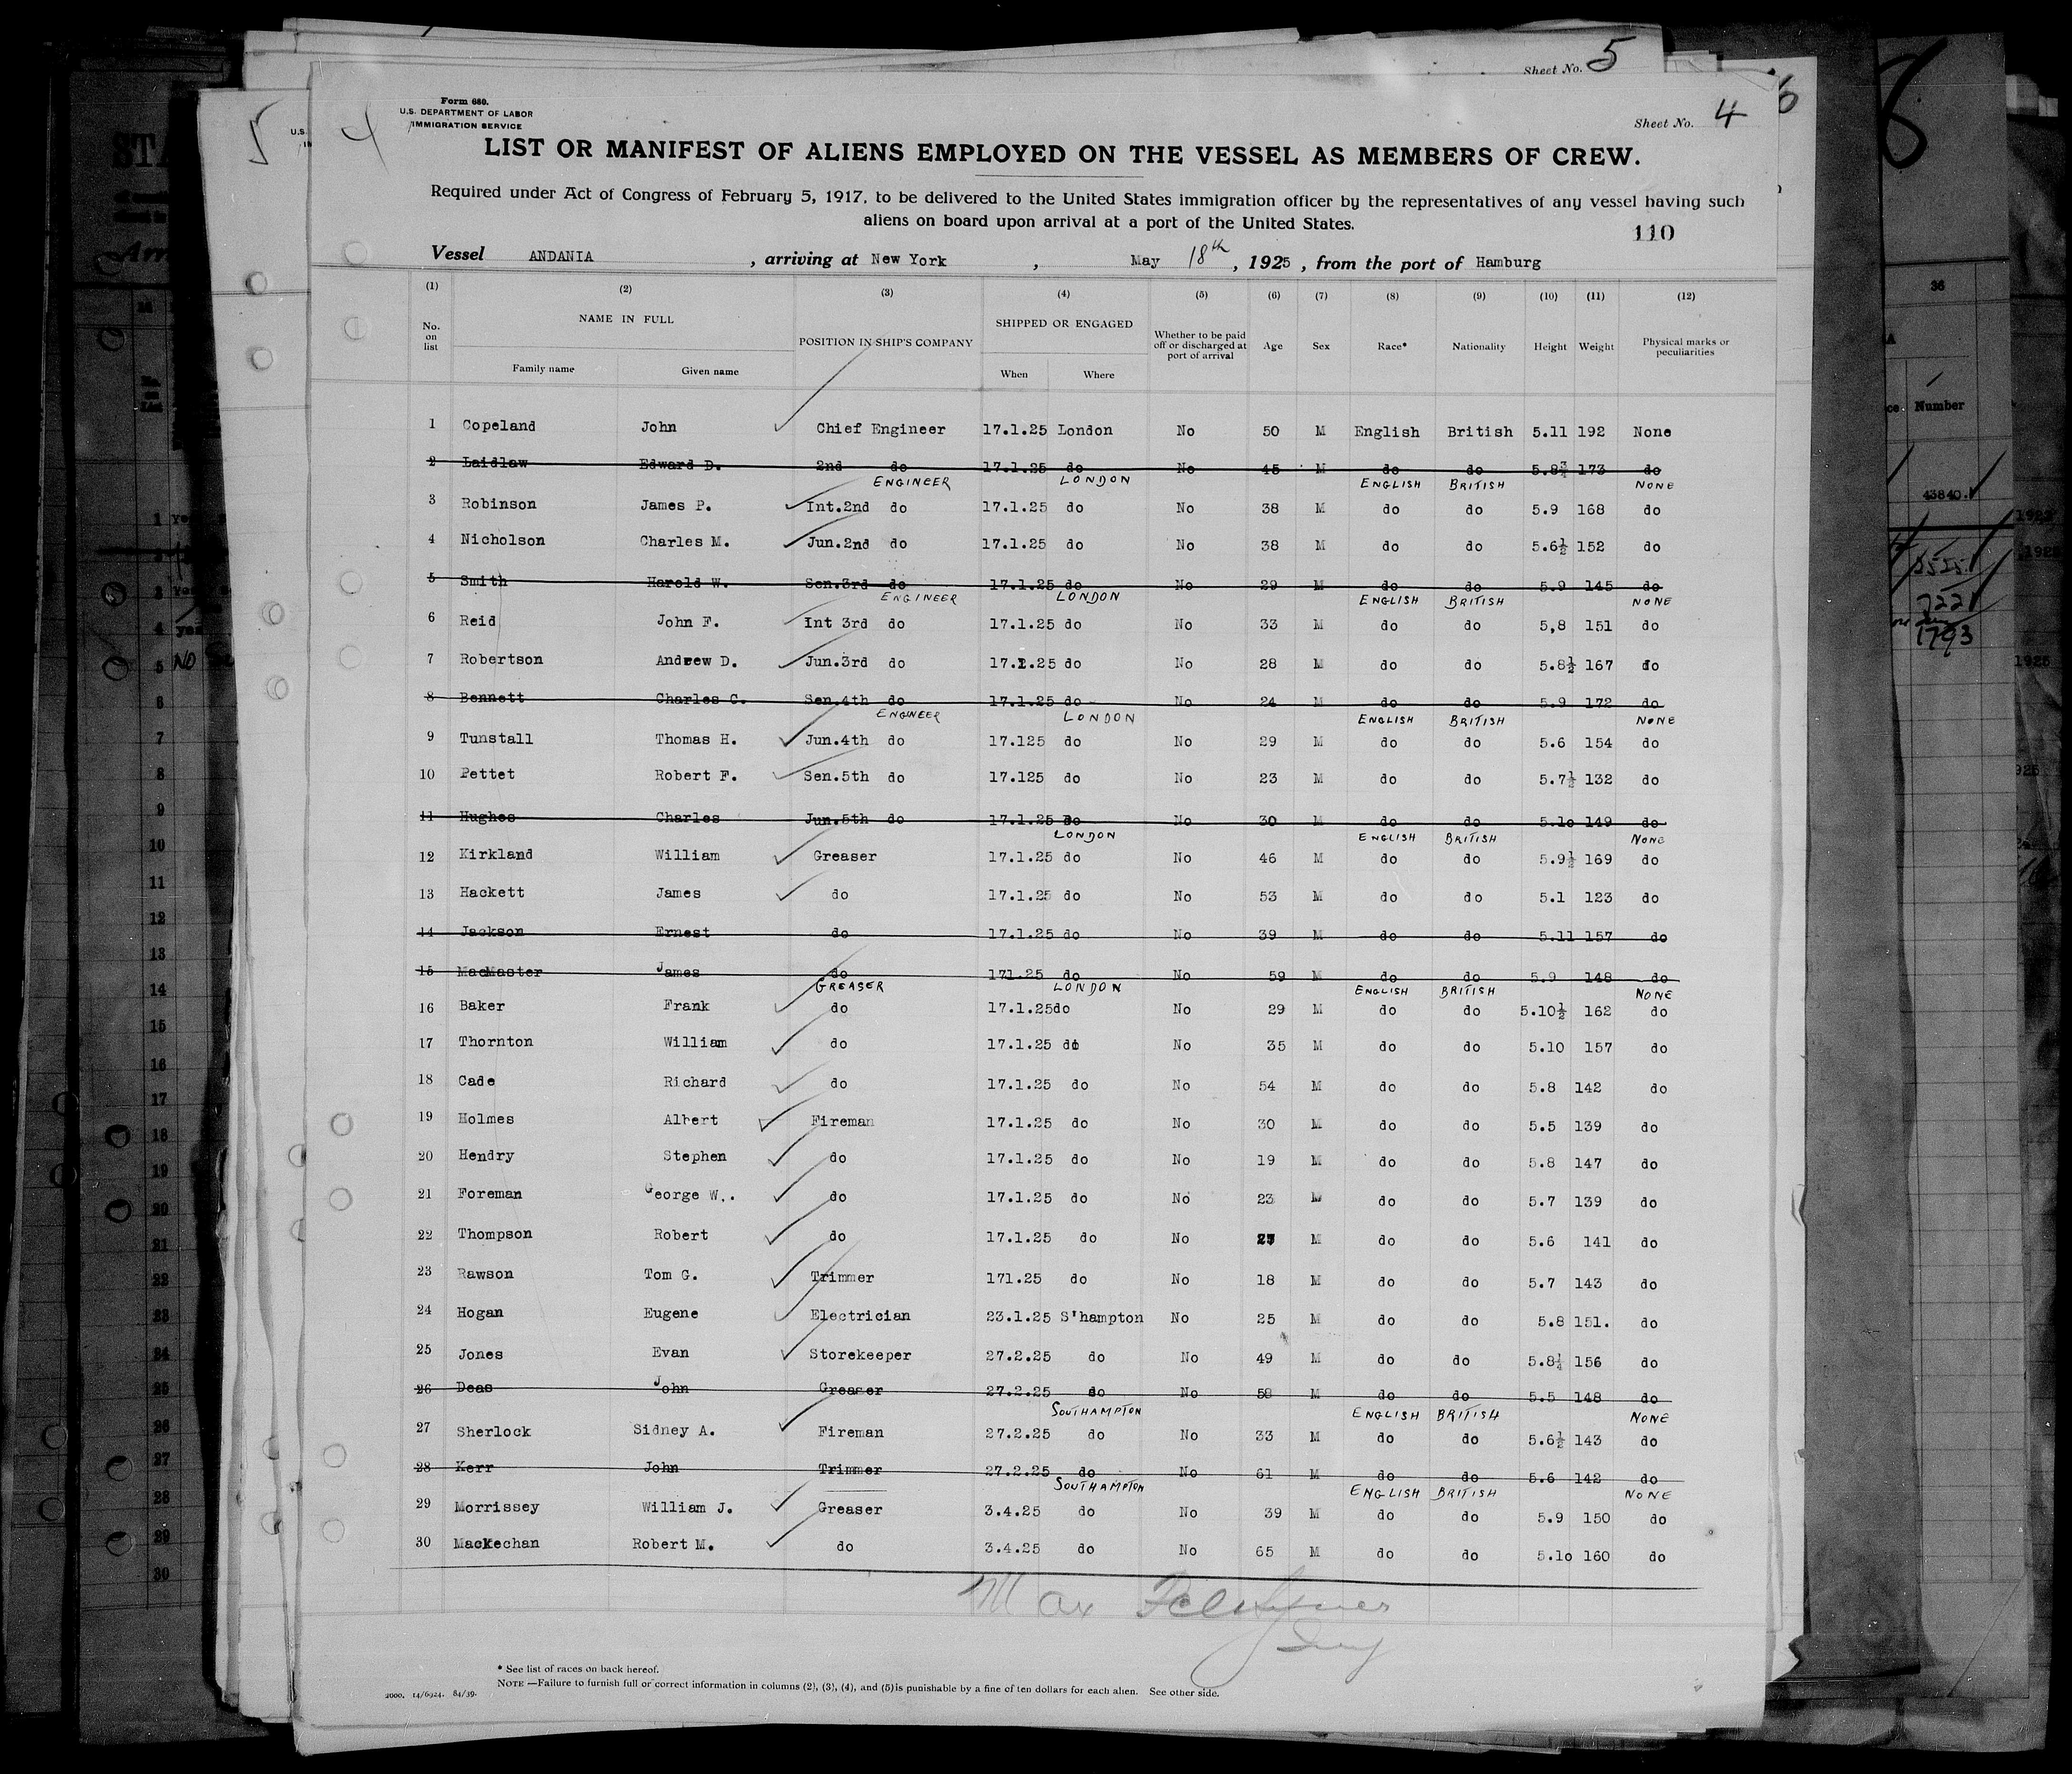 Sheet No. 5
Form 680.
U.S. DEPARTMENT OF LABOR
IMMIGRATION SERVICE
Sheet No. 4
LIST OR MANIFEST OF ALIENS EMPLOYED ON THE VESSEL AS MEMBERS OF CREW.
Required under Act of Congress of February 5, 1917, to be delivered to the United States immigration officer by the representatives of any vessel having such
aliens on board upon arrival at a port of the United States.
110
Vessel ANDANIA, arriving at New York, May 18th, 1925, from the port of Hamburg
(1) (2) (3) (4) (5) (6) (7) (8) (9) (10) (11) (12)
No. on list NAME IN FULL POSITION IN SHIP'S COMPANY SHIPPED OR ENGAGED Whether to be paid off or discharged at port of arrival Age Sex Race* Nationality Height Weight Physical marks or peculiarities
Family name Given name When Where
1 Copeland John Chief Engineer 17.1.25 London No 50 M English British 5.11 192 None
2 Laidlaw Edward D. 2nd do 17.1.25 do No 45 M do do 5.8¾ 173 do
ENGINEER LONDON ENGLISH BRITISH NONE
3 Robinson James P. Int.2nd do 17.1.25 do No 38 M do do 5.9 168 do
4 Nicholson Charles M. Jun.2nd do 17.1.25 do No 38 M do do 5.6½ 152 do
5 Smith Harold W. Sen.3rd do 17.1.25 do No 29 M do do 5.9 145 do
ENGINEER LONDON ENGLISH BRITISH NONE
6 Reid John F. Int 3rd do 17.1.25 do No 33 M do do 5,8 151 do
7 Robertson Andrew D. Jun.3rd do 17.1.25 do No 28 M do do 5.8½ 167 do
8 Bennett Charles C. Sen.4th do 17.1.25 do No 24 M do do 5.9 172 do
ENGINEER LONDON ENGLISH BRITISH NONE
9 Tunstall Thomas H. Jun.4th do 17.125 do No 29 M do do 5.6 154 do
10 Pettet Robert F. Sen.5th do 17.125 do No 23 M do do 5.7½ 132 do
11 Hughes Charles Jun.5th do 17.1.25 do No 30 M do do 5.10 149 do
LONDON ENGLISH BRITISH NONE
12 Kirkland William Greaser 17.1.25 do No 46 M do do 5.9½ 169 do
13 Hackett James do 17.1.25 do No 53 M do do 5.1 123 do
14 Jackson Ernest do 17.1.25 do No 39 M do do 5.11 157 do
15 MacMaster James do 171.25 do No 59 M do do 5.9 148 do
GREASER LONDON ENGLISH BRITISH NONE
16 Baker Frank do 17.1.25do No 29 M do do 5.10½ 162 do
17 Thornton William do 17.1.25 do No 35 M do do 5.10 157 do
18 Cade Richard do 17.1.25 do No 54 M do do 5.8 142 do
19 Holmes Albert Fireman 17.1.25 do No 30 M do do 5.5 139 do
20 Hendry Stephen do 17.1.25 do No 19 M do do 5.8 147 do
21 Foreman George W.. do 17.1.25 do No 23 M do do 5.7 139 do
22 Thompson Robert do 17.1.25 do No M do do 5.6 141 do
23 Rawson Tom G. Trimmer 171.25 do No 18 M do do 5.7 143 do
24 Hogan Eugene Electrician 23.1.25 S'hampton No 25 M do do 5.8 151. do
25 Jones Evan Storekeeper 27.2.25 do No 49 M do do 5.8¼ 156 do
26 Deas John Greaser 27.2.25 do No 58 M do do 5.5 148 do
SOUTHAMPTON ENGLISH BRITISH NONE
27 Sherlock Sidney A. Fireman 27.2.25 do No 33 M do do 5.6½ 143 do
28 Kerr John Trimmer 27.2.25 do No 61 M do do 5.6 142 do
SOUTHAMPTON ENGLISH BRITISH NONE
29 Morrissey William J. Greaser 3.4.25 do No 39 M do do 5.9 150 do
30 Mackechan Robert M. do 3.4.25 do No 65 M do do 5.10 160 do
Max
* See list of races on back hereof.
NOTE —Failure to furnish full or correct information in columns (2), (3), (4), and (5) is punishable by a fine of ten dollars for each alien. See other side.
2000. 14/6924. 84/39.